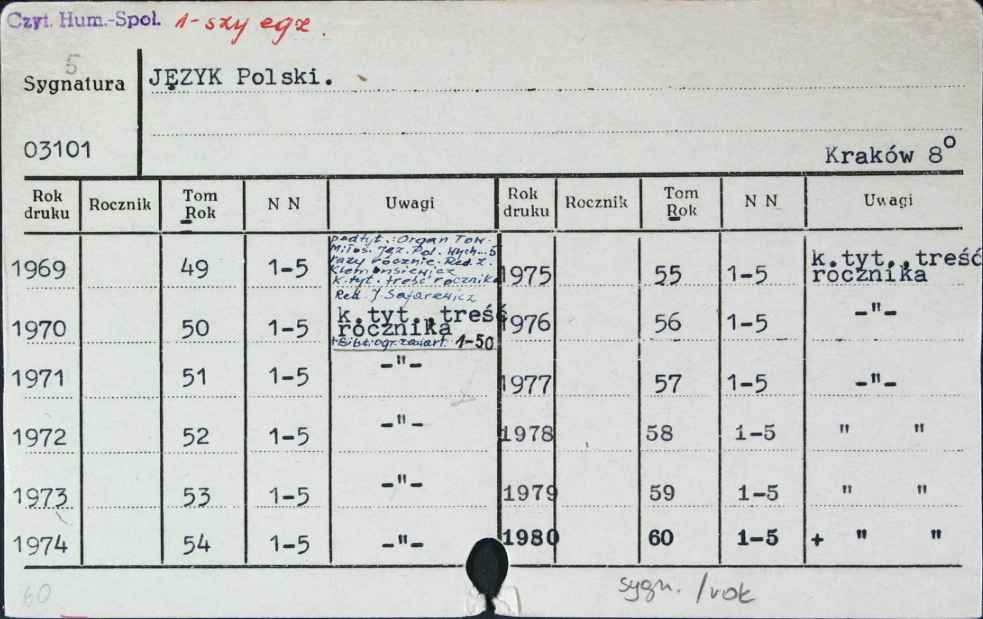 Czyt. Hum.-Społ. 1-szy egz.
5
Sygnatura JĘZYK Polski.
03101
Kraków 8°
Rok druku Rocznik Tom Rok N N Uwagi Rok druku Rocznik Tom Rok N N Uwagi
podtyt.: Organ Tow.
Miłoś. Jęz. Pol. Wych. 5
razy rocznie. Red. Z.
Klemensiewicz
k. tyt. treść rocznika
1969 49 1-5 1975 55 1-5 k.tyt.,treść
rocznika
Red. J. Safarewicz
1970 50 1-5 k.tyt.,treść 1976 56 1-5 -"-
rocznika
+Bibliogr. zawart. 1-50
1971 51 1-5 -"- 1977 57 1-5 -"-
1972 52 1-5 -"- 1978 58 1-5 " "
1973 53 1-5 -"- 1979 59 1-5 " "
1974 54 1-5 -"- 1980 60 1-5 + " "
60 sygn. /rok